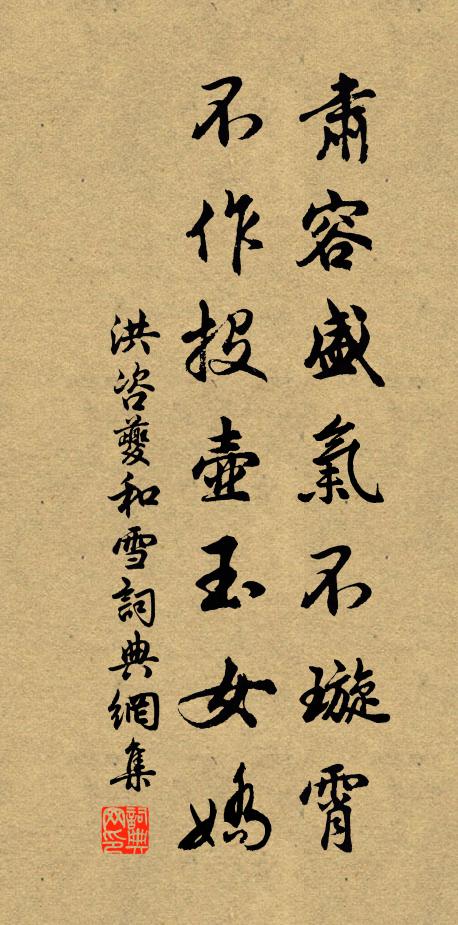 肅容盛氣不璇霄
不作投壺玉女嬌
洪咨夔和雪詞典網集
詞典网印